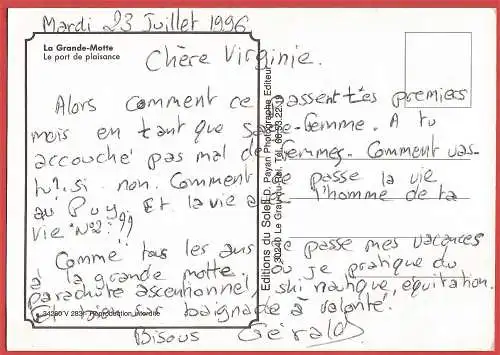 Mardi 23 Juillet 1996
La Grande-Motte
Le port de plaisance
Chère Virginie.
Alors comment ce passent tes premiers
mois en tant que Sage-Femme. A tu
accouché pas mal de femmes. Comment vas-
tu? si non. Comment ce passe la vie
au Puy. Et la vie a l'homme de ta
vie N°2. ??
Comme tous les ans je passe mes vacances
à la grande motte. ou je pratique du
parachute ascentionnel, ski nautique, équitation.
Et surout baignade à volonté.
Bisous Gérald
Editions du Soleil D. Payan Photographe Editeur
30240 Le Grau-du-Roi. Tél. 66.53.22.19
34280 V 283 - Reproduction interdite